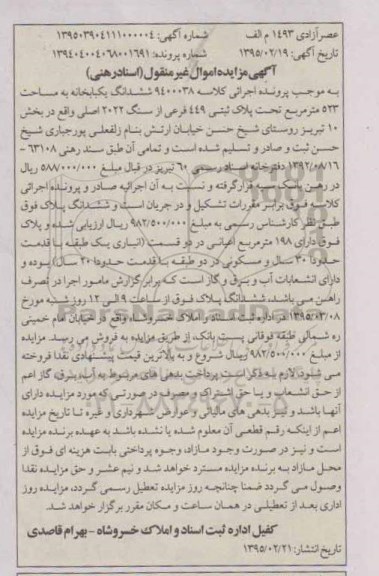 عصرآزادی ۱۴۹۳ م الف شماره آگهی: ۱۳۹۵۰۳۹۰۴۱۱۱۰۰۰۰۰۴
تاریخ آگهی: ۱۳۹۵/۰۲/۱۹ شماره پرونده: ۱۳۹۴۰۴۰۰۴۰۶۸۰۰۱۶۹۱
آگهی مزایده اموال غیر منقول (اسناد رهنی)
به موجب پرونده اجرائی کلاسه ۹۴۰۰۰۳۸ ششدانگ یکبابخانه به مساحت
۵۲۳ مترمربع تحت پلاک ثبتی ۴۴۹ فرعی از سنگ ۲۰۲۲ اصلی واقع در بخش
۱۰ تبریز روستای شیخ حسن خیابان ارتش بنام زلفعلی پورجباری شیخ
حسن ثبت و صادر و تسلیم شده است و تمامی آن طبق سند رهنی ۶۳۱۰۸ -
۱۳۹۲/۰۸/۱۶ دفترخانه اسناد رسمی ۶۰ تبریز در قبال مبلغ ۵۸۸/۰۰۰/۰۰۰ ریال
در رهن بانک سپه قرار گرفته و نسبت به آن اجرائیه صادر و پرونده اجرائی
کلاسه فوق برابر مقررات تشکیل و در جریان است و ششدانگ پلاک فوق
طبق نظر کارشناس رسمی به مبلغ ۹۸۲/۵۰۰/۰۰۰ ریال ارزیابی شده و پلاک
فوق دارای ۱۹۸ مترمربع اعیانی در دو قسمت (انباری یک طبقه با قدمت
حدودا ۳۰ سال و مسکونی در دو طبقه با قدمت حدودا ۲۰ سال) بوده و
دارای انشعابات آب و برق و گاز است که برابر گزارش مامور اجرا در تصرف
راهن می باشد، ششدانگ پلاک فوق از ساعت ۹ الی ۱۲ روز شنبه مورخ
۱۳۹۵/۰۳/۰۸ در اداره ثبت اسناد و املاک خسروشاه واقع در خیابان امام خمینی
ره شمالی طبقه فوقانی پست بانک، از طریق مزایده به فروش می رسد. مزایده
از مبلغ ۹۸۲/۵۰۰/۰۰۰ ریال شروع و به بالاترین قیمت پیشنهادی نقدا فروخته
می شود. لازم به ذکر است پرداخت بدهی های مربوط به آب، برق، گاز اعم
از حق انشعاب و یا حق اشتراک و مصرف در صورتی که مورد مزایده دارای
آنها باشد و نیز بدهی های مالیاتی و عوارض شهرداری و غیره تا تاریخ مزایده
اعم از اینکه رقم قطعی آن معلوم شده یا نشده باشد به عهده برنده مزایده
است و نیز در صورت وجود مازاد، وجوه پرداختی بابت هزینه ای فوق از
محل مازاد به برنده مزایده مسترد خواهد شد و نیم عشر و حق مزایده نقدا
وصول می گردد ضمنا چنانچه روز مزایده تعطیل رسمی گردد، مزایده روز
اداری بعد از تعطیلی در همان ساعت و مکان مقرر برگزار خواهد شد.
کفیل اداره ثبت اسناد و املاک خسروشاه - بهرام قاصدی
تاریخ انتشار: ۱۳۹۵/۰۲/۲۱